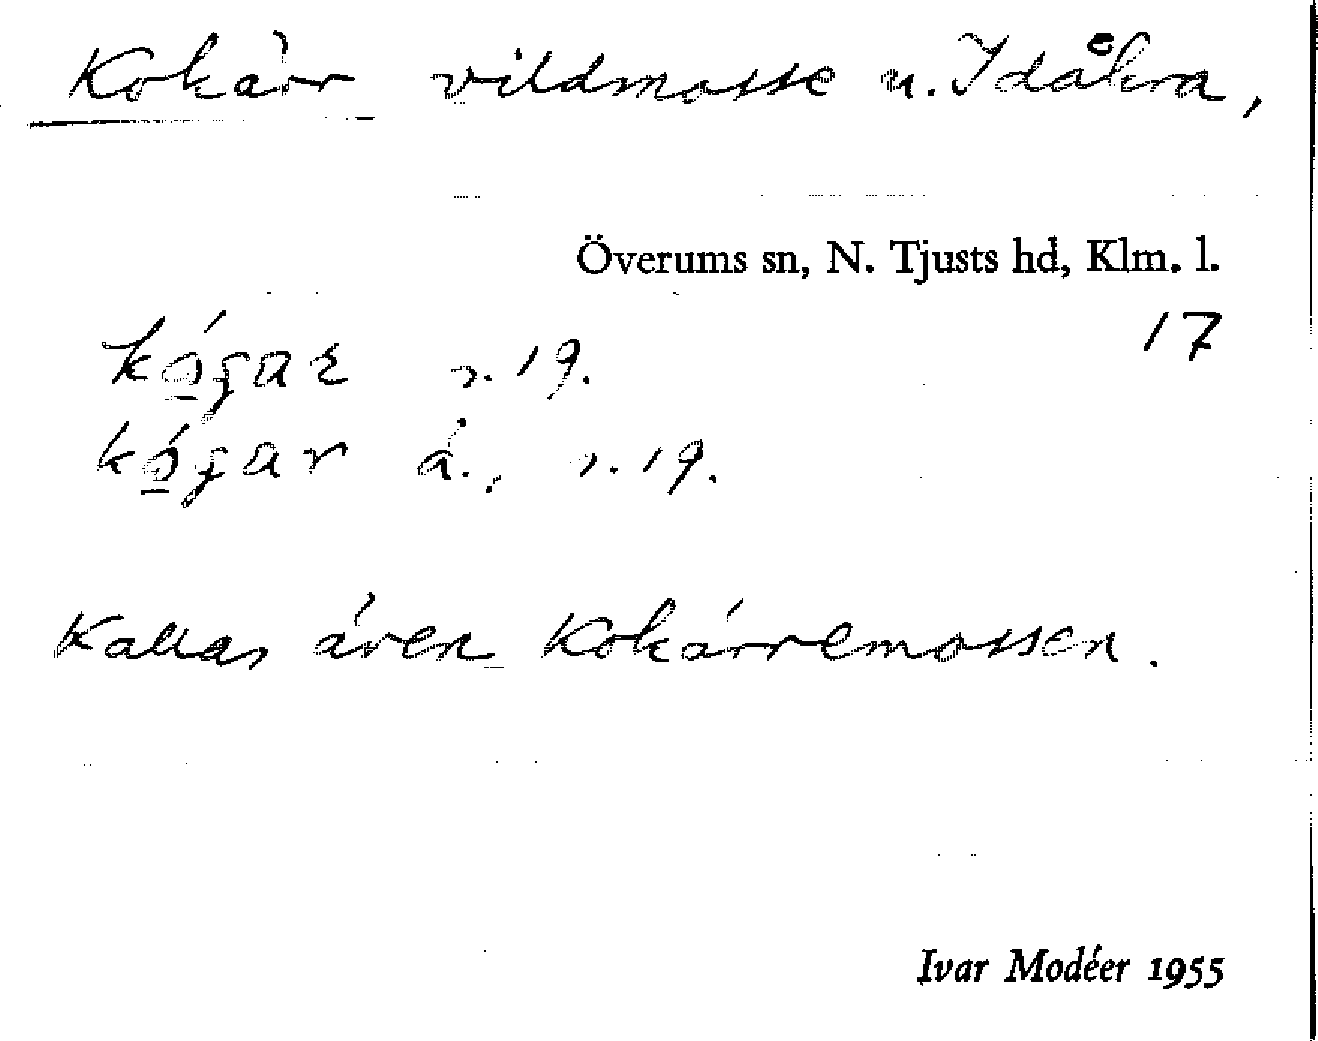 Kokärr vildmosse u. Idåkra,
Överums sn, N. Tjusts hd, Klm. l.
17
kógar s. 19.
kógar å., s. 19.
Kallas även Kokärremossen.
Ivar Modéer 1955